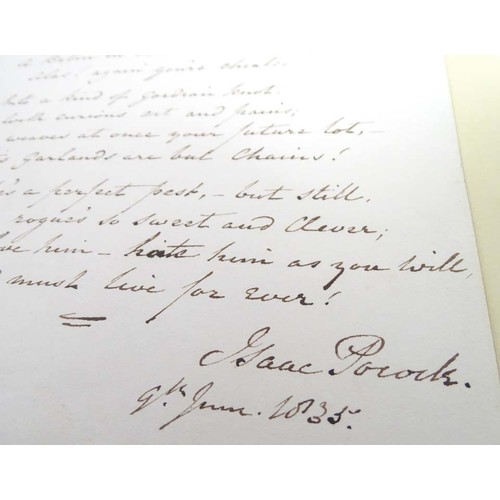 Alas! again you're cheated.
a kind of Gordian knot.
curious art and pains;
weaves at once your future lot, –
Garlands are but Chains!
a perfect pest, – but still,
rogue's so sweet and Clever;
him – hate him as you will,
must live for ever!
Isaac Pocock.
9th June. 1835.